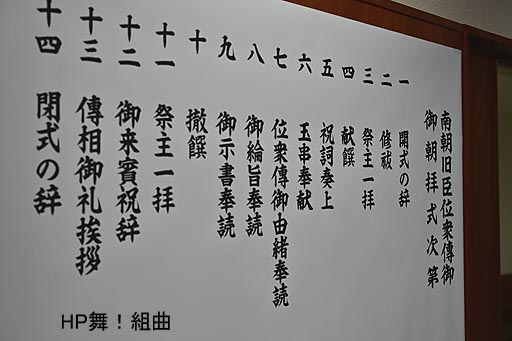 南朝旧臣位衆傳御
御朝拝式次第
一 開式の辞
二 修祓
三 祭主一拝
四 献饌
五 祝詞奏上
六 玉串奉献
七 位衆傳御由緒奉読
八 御綸旨奉読
九 御示書奉読
十 撤饌
十一 祭主一拝
十二 御来賓祝辞
十三 傳相御礼挨拶
十四 閉式の辞
HP舞！組曲